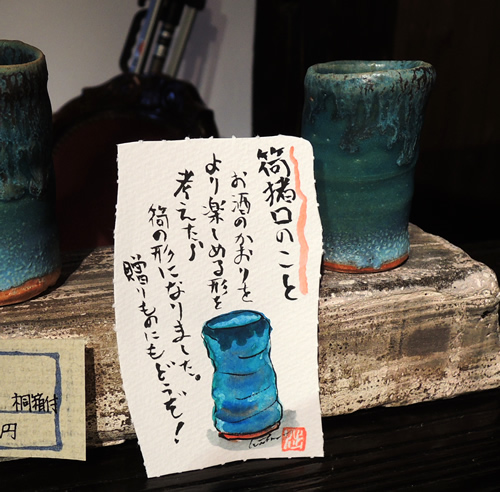 筒猪口のこと
お酒のかおりを
より楽しめる形を
考えたら
筒の形になりました。
贈りものにもどうぞ!
桐箱付
円